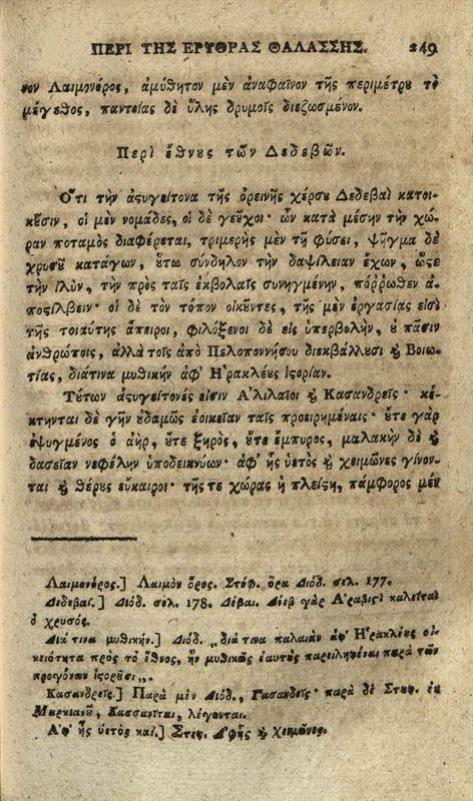 ΠΕΡΙ ΤΗΣ ΕΡΥΘΡΑΣ ΘΑΛΑΣΣΗΣ. 249
νον Λαιμονόρος, ἀμύθητον μὲν ἀναφαῖνον τῆς περιμέτρȣ τὸ
μέγεθος, παντείας δὲ ὕλης δρυμοῖς διεζωσμένον.
Περὶ ἔθνȣς τῶν Δεδεβῶν.
Ὅτι τὴν ἀϛυγείτονα τῆς ὀρεινῆς χέρσȣ Δεδεβαὶ κατοι-
κȣ͂σιν, οἱ μὲν νομάδες, οἱ δὲ γεῦχοι· ὧν κατὰ μέσην τὴν χώ-
ραν ποταμὸς διαφέρεται, τριμερὴς μὲν τῇ φύσει, ψῆγμα δὲ
χρυσȣ͂ κατάγων, ȣ῞τω σύνδηλον τὴν δαψίλειαν ἔχων, ὥϛε
τὴν ἰλὺν, τὴν πρὸς ταῖς ἐκβολαῖς συνηγμένην, πόῤῥωθεν ἀ-
ποϛίλβειν· οἱ δὲ τὸν τόπον οἰκȣ͂ντες, τῆς μὲν ἐργασίας εἰσὶ
τῆς τοιαύτης ἄπειροι, φιλόξενοι δὲ εἰς ὑπερβολὴν, ȣ̓ πᾶσιν
ἀνθρώποις, ἀλλὰ τοῖς ἀπὸ Πελοποννήσου διεκβάλλȣσι ϗ Βοιω-
τίας, διάτινα μυθικὴν ἀφ' Ἡρακλέȣς ἱϛορίαν.
Τȣ́των ἀϛυγείτονές εἰσιν Ἀλιλαῖοι ϗ Κασανδρεῖς· κέ-
κτηνται δὲ γῆν ȣ̓δαμῶς ἐοικεῖαν ταῖς προειρημέναις· ȣ῎τε γὰρ
ἐψυγμένος ὁ ἀὴρ, ȣ῎τε ξηρὸς, ȣ῎τε ἔμπυρος, μαλακὴν δὲ ϗ
δασεῖαν νεφέλην ὑποδεικνύων· ἀφ' ἧς ὑετὸς ϗ χειμῶνες γίνον-
ται ϗ θέρȣς εὔκαιροι· τῆς τε χώρας ἡ πλείϛη, πάμφορος μὲν
Λαιμονόρος.] Λαιμὸν ὄρος. Στέφ. ὅρα Διόδ. σελ. 177.
Δεδεβαί.] Διόδ. σελ. 178. Δέβαι. Δὲεβ γὰρ Ἀραβιϛὶ καλεῖται
ὁ χρυσός.
Διά τινα μυθικήν.] Διόδ. „διά τινα παλαιὰν ἀφ' Ἡρακλέȣς οἰ-
κειότητα πρὸς τὸ ἔθνος, ἣν μυθικῶς ἑαυτὲς παρειληφέναι παρὰ τῶν
προγόνων ἱϛορȣ͂σι„.
Κασανδρεῖς.] Παρὰ μὲν Διόδ., Γασανδεῖς· παρὰ δὲ Στεφ. ἐκ
Μαρκιανȣ͂, Κασσανῖται, λέγονται.
Ἀφ' ἧς ὑετὸς καί.] Στεφ. ϗ χειμῶνες.